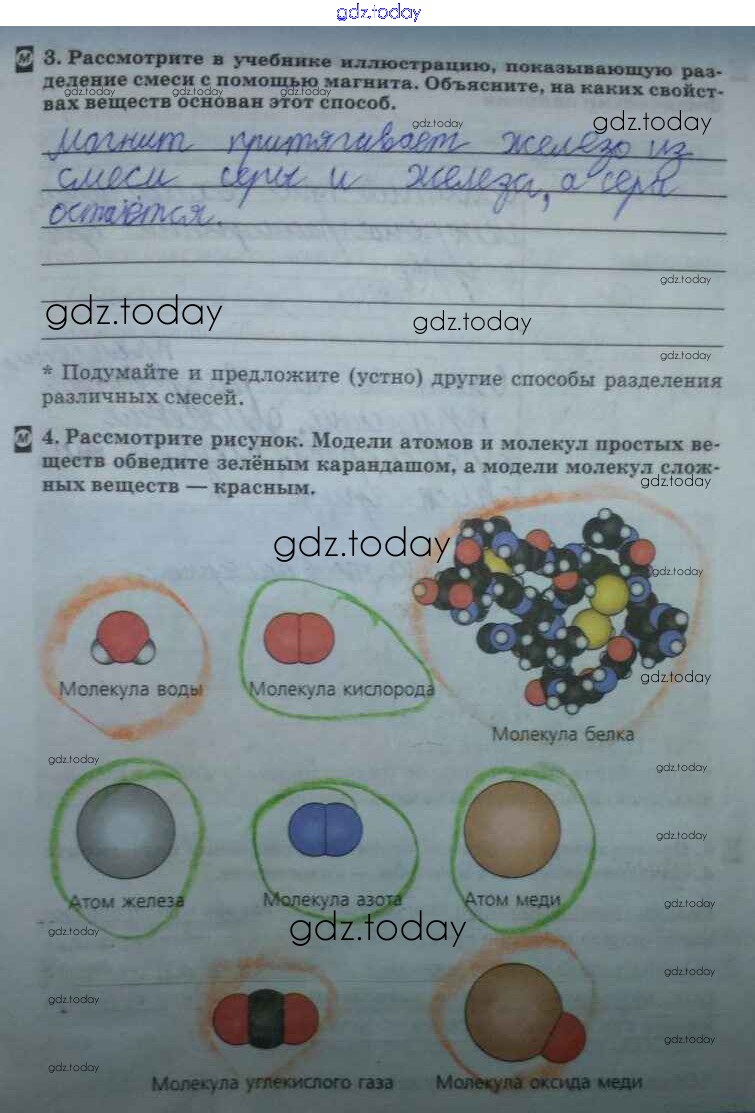 gdz.today
М 3. Рассмотрите в учебнике иллюстрацию, показывающую раз-
деление смеси с помощью магнита. Объясните, на каких свойст-
gdz.today gdz.today gdz.today
вах веществ основан этот способ.
gdz.today gdz.today
магнит притягивает железо из
смеси серы и железа, а сера
остаётся.
gdz.today
gdz.today gdz.today
gdz.today
* Подумайте и предложите (устно) другие способы разделения
различных смесей.
М 4. Рассмотрите рисунок. Модели атомов и молекул простых ве-
ществ обведите зелёным карандашом, а модели молекул слож-
ных веществ — красным.
gdz.today
gdz.today
gdz.today
gdz.today
Молекула воды Молекула кислорода
Молекула белка
gdz.today gdz.today
gdz.today
Атом железа Молекула азота Атом меди
gdz.today
gdz.today gdz.today
gdz.today
gdz.today
gdz.today
gdz.today
Молекула углекислого газа Молекула оксида меди